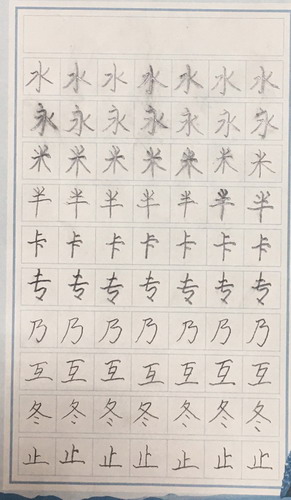 水水水水水水水
永永永永永永永
米米米米米米米
半半半半半半半
卡卡卡卡卡卡卡
专专专专专专专
乃乃乃乃乃乃乃
互互互互互互互
冬冬冬冬冬冬冬
止止止止止止止